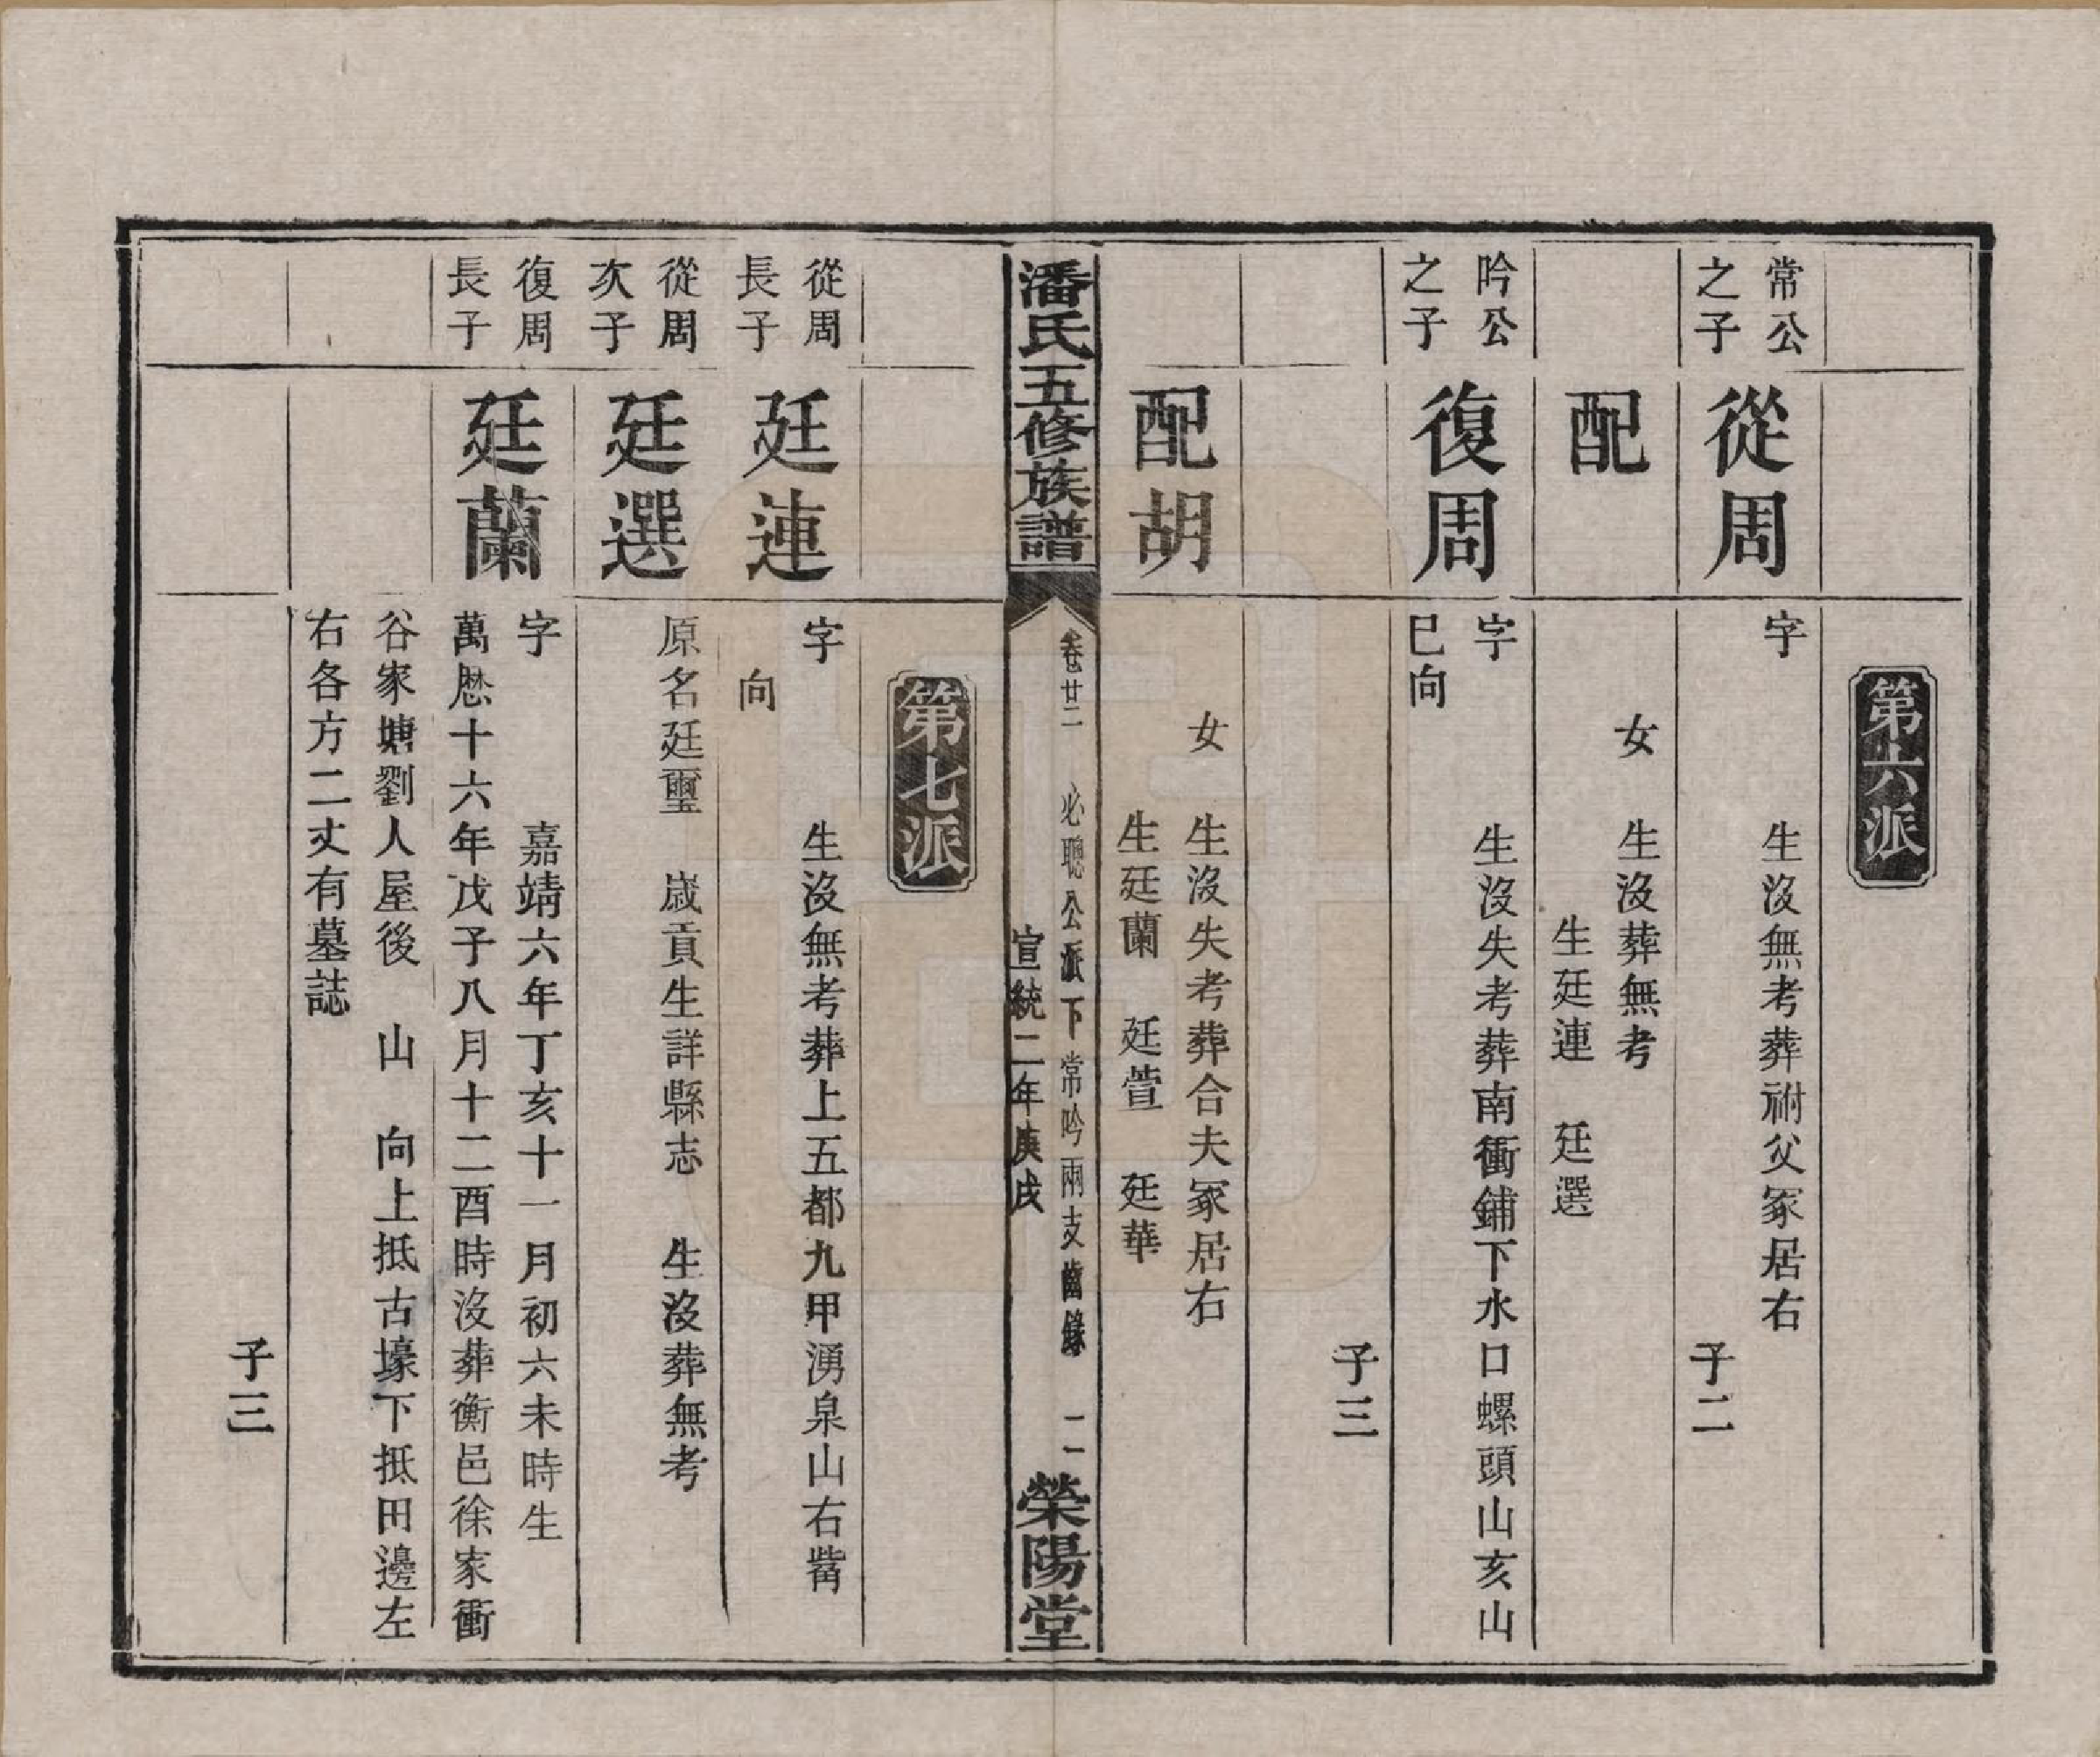 第六派
常公
之子
從周
字 生沒無考葬祔父冢居右
子二
配
女 生沒葬無考
生廷連 廷選
吟公
之子
復周
字 生沒失考葬南衝鋪下水口螺頭山亥山
巳向
子三
配胡
女 生沒失考葬合夫冢居右
生廷蘭 廷萱 廷華
潘氏五修族譜
卷廿二 必聰公派下常吟兩支齒錄 二一
宣統二年庚戌
榮陽堂
第七派
從周
長子
廷連
字 生沒無考葬上五都九甲湧泉山右觜
向
從周
次子
廷選
原名廷璽 歲貢生詳縣志 生沒葬無考
復周
長子
廷蘭
字 嘉靖六年丁亥十一月初六未時生
萬懸十六年戊子八月十二酉時沒葬衡邑徐家衝
谷家塘劉人屋後 山 向上抵古壕下抵田邊左
右各方二丈有墓誌
子三